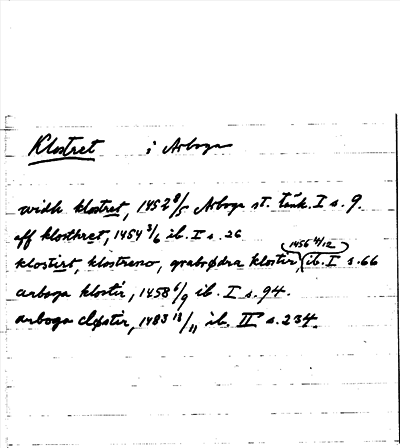 Klostret i Arboga
widh klostret, 1452 8/5 Arboga st. tänk. I s. 9.
aff klosthret, 1454 3/6 ib. I s. 26
1456 4/12
klostirt, klostreno, grabrødra kloster, ib. I s. 66
arboga kloster, 1458 6/9 ib. I s. 94.
arboga cløster, 1483 18/11 ib. II s. 234.